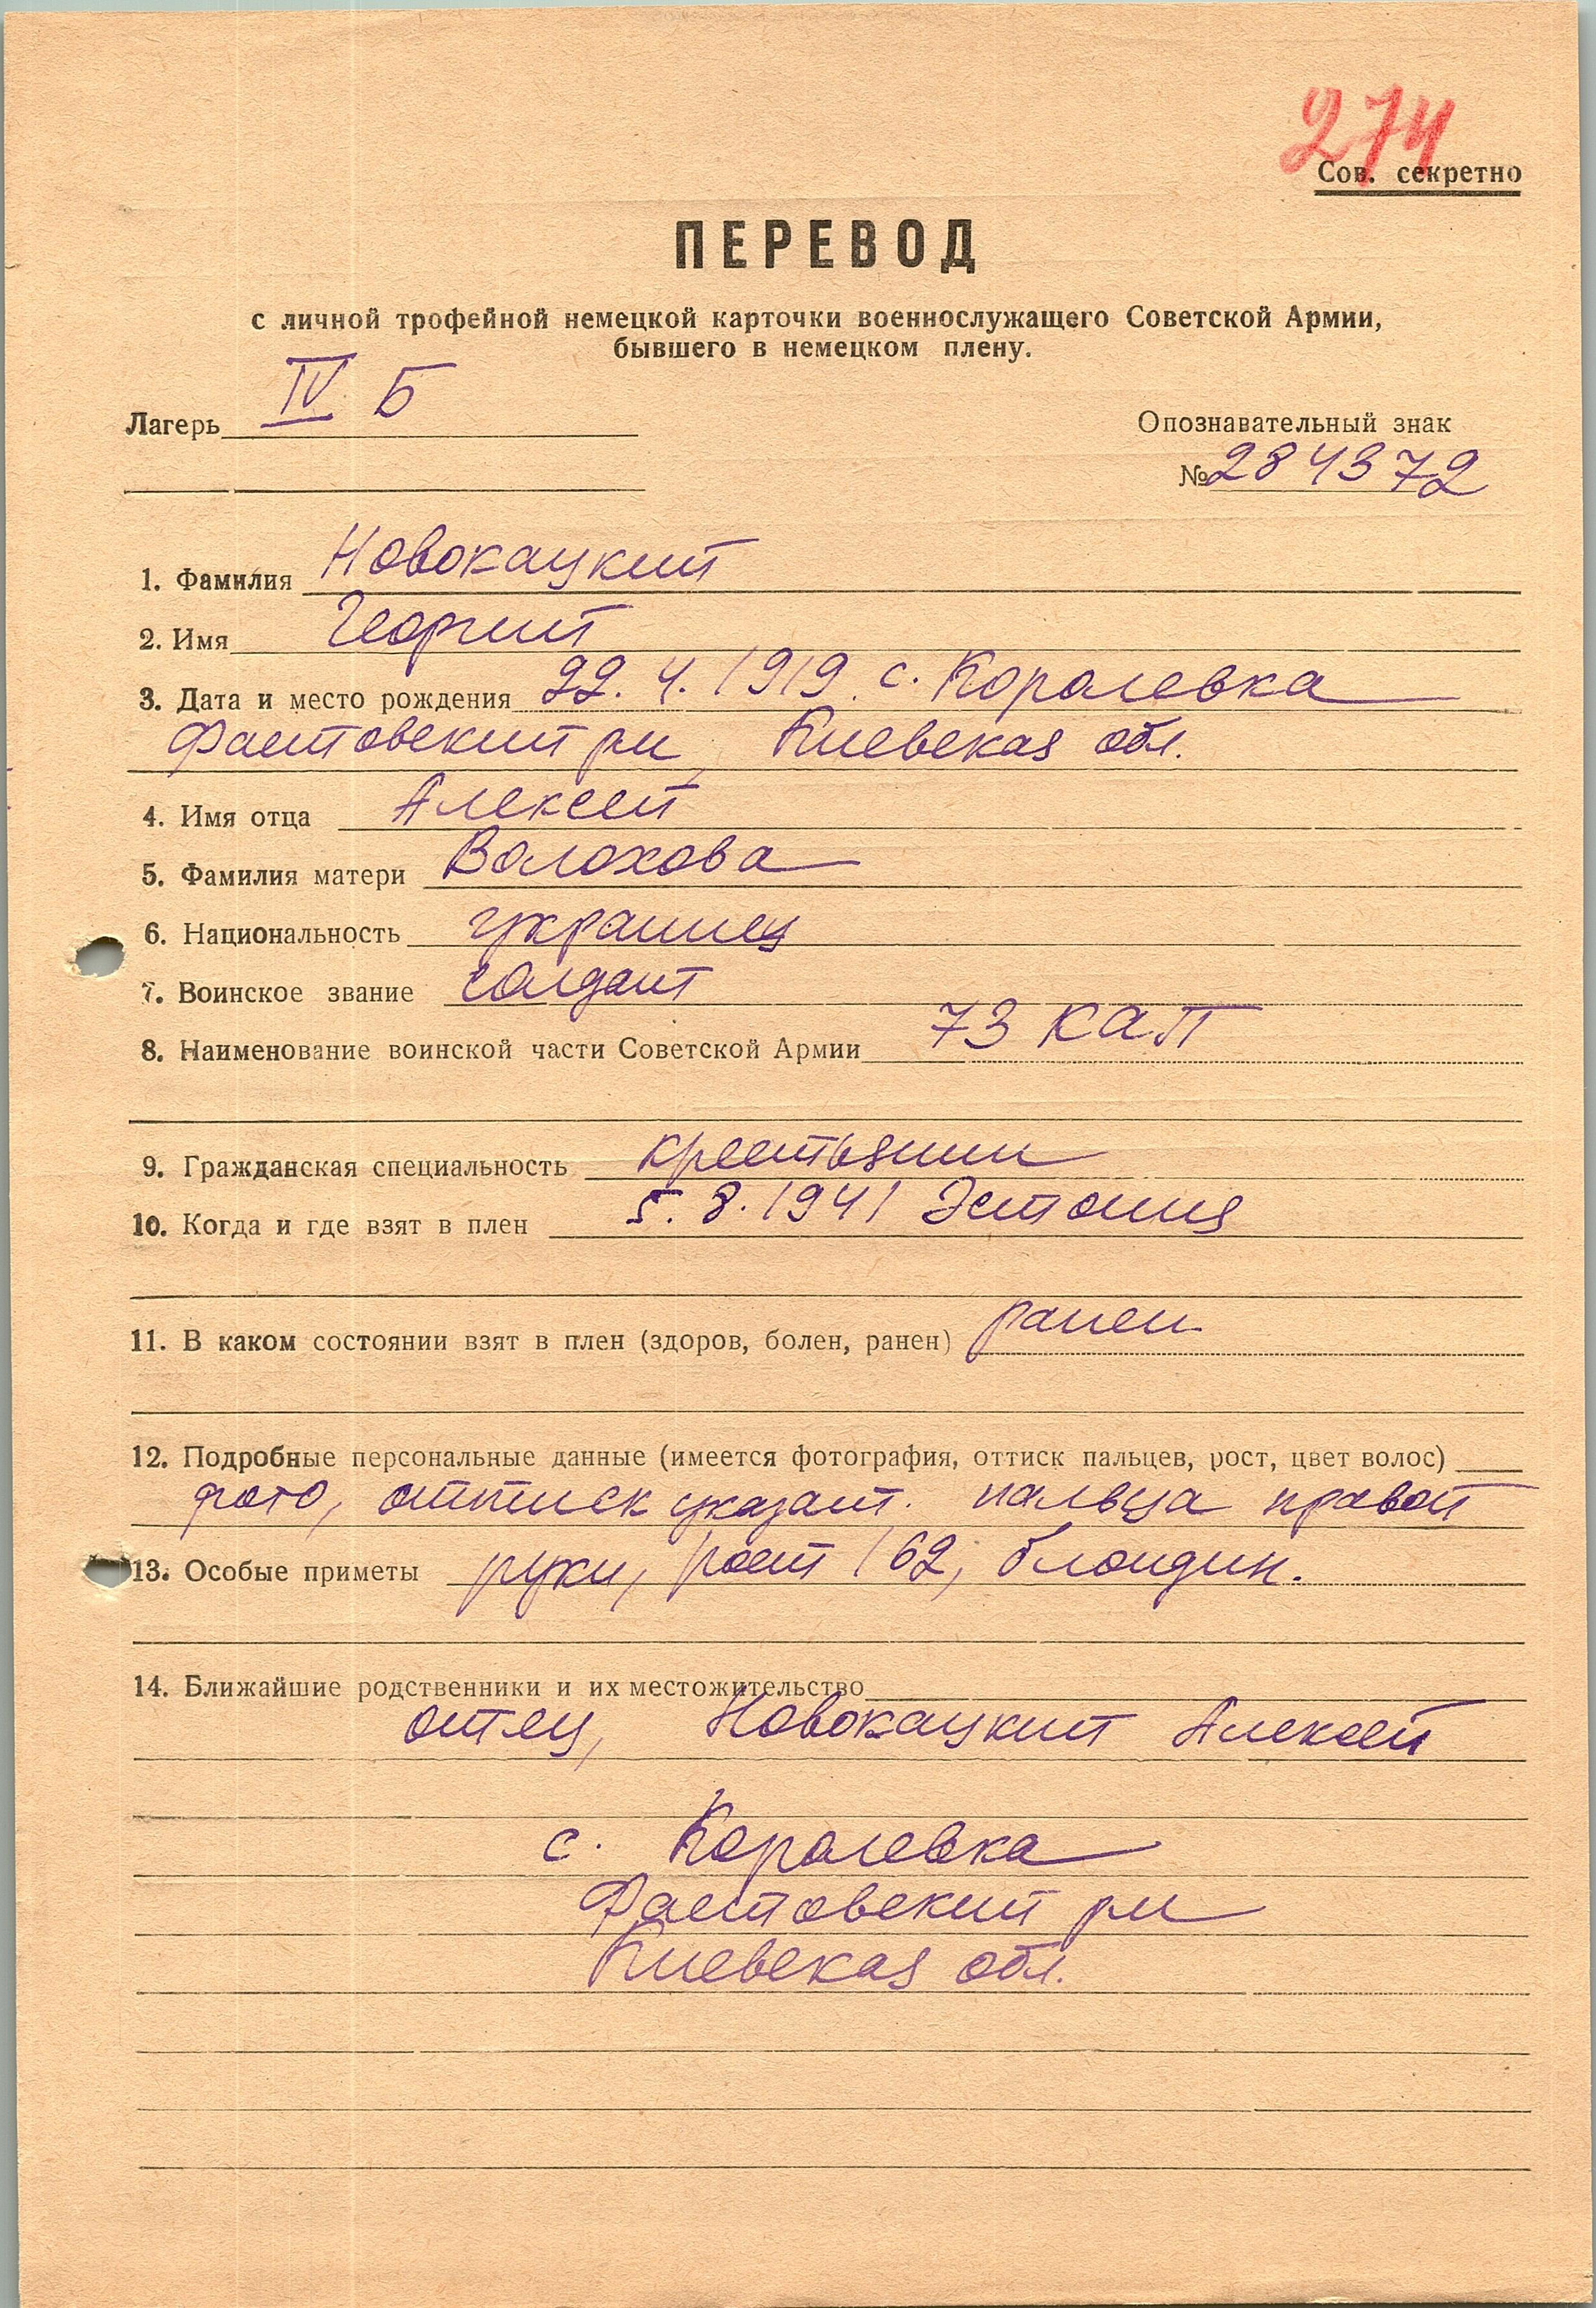 274
Сов. секретно
ПЕРЕВОД
с личной трофейной немецкой карточки военнослужащего Советской Армии,
бывшего в немецком плену.
Лагерь IV Б
Опознавательный знак
№ 284372
1. Фамилия Новокацкий
2. Имя Георгий
3. Дата и место рождения 22.4.1919 с. Королевка
Фастовский рн, Киевская обл.
4. Имя отца Алексей
5. Фамилия матери Волохова
6. Национальность украинец
7. Воинское звание солдат
8. Наименование воинской части Советской Армии 73 КАП
9. Гражданская специальность крестьянин
10. Когда и где взят в плен 5.8.1941 Эстония
11. В каком состоянии взят в плен (здоров, болен, ранен) ранен
12. Подробные персональные данные (имеется фотография, оттиск пальцев, рост, цвет волос)
фото, оттиск указат. пальца правой
13. Особые приметы руки, рост 162, блондин.
14. Ближайшие родственники и их местожительство
отец, Новокацкий Алексей
с. Королевка
Фастовский рн
Киевская обл.